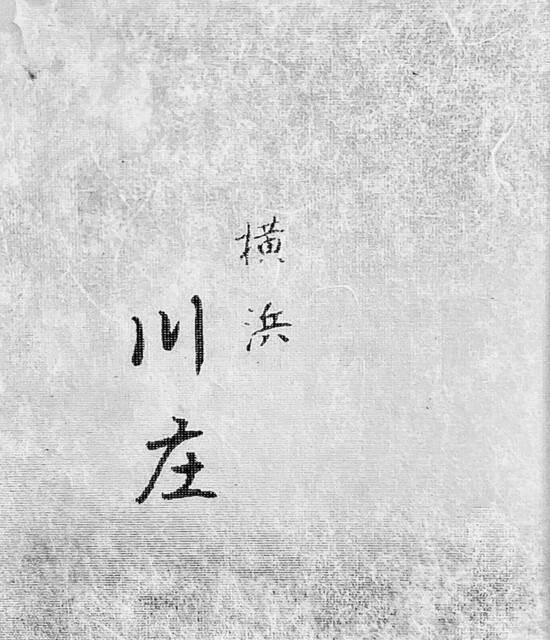 横浜
川庄